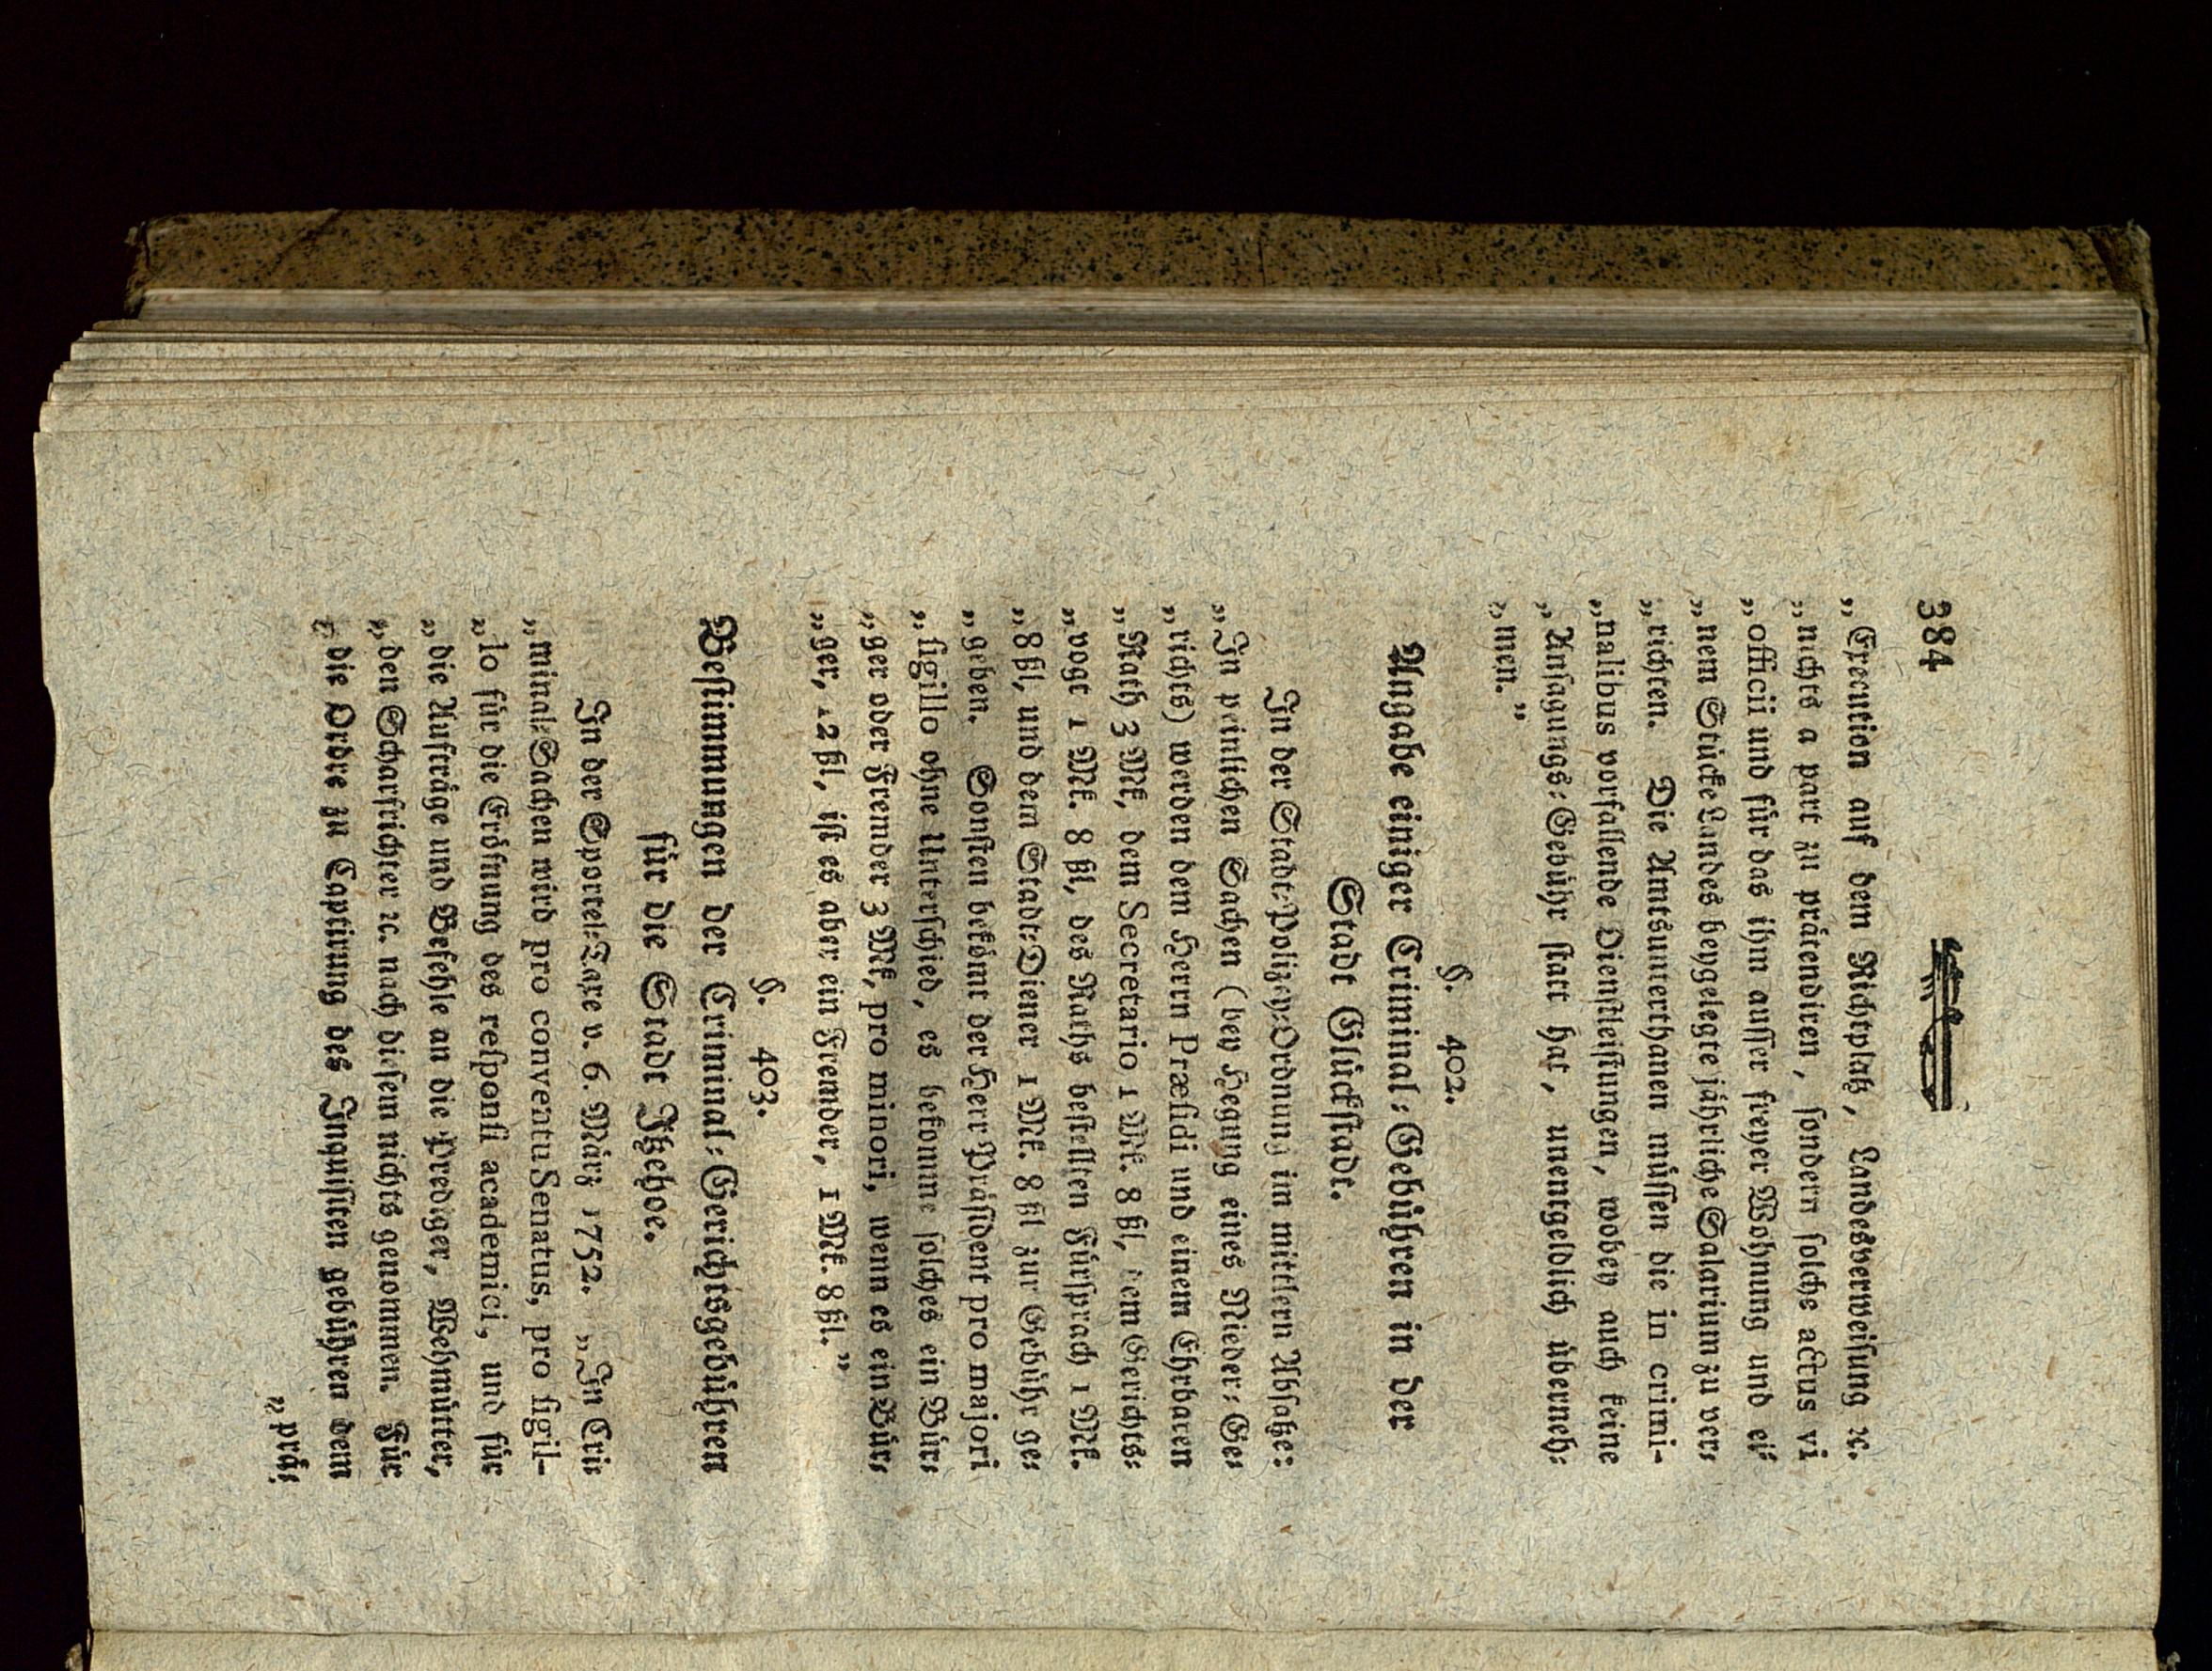 384
„Execution auf dem Richtplatz, Landesverweisung ꝛc.
„nichts a part zu prätendiren, sondern solche actus vi
„officii und für das ihm ausser freyer Wohnung und ei⸗
„nem Stücke Landes beygelegte jährliche Salarium zu ver⸗
„richten. Die Amtsunterthanen müssen die in crimi-
„nalibus vorfallende Dienstleistungen, wobey auch keine
„Ansagungs⸗Gebühr statt hat, unentgeldlich überneh⸗
„men.”
§. 402.
Angabe einiger Criminal⸗Gebühren in der
Stadt Glückstadt.
In der Stadt⸗Polizey⸗Ordnung im mittlern Absatze:
„In peinlichen Sachen (bey Hegung eines Nieder⸗Ge⸗
„richts) werden dem Herrn Præsidi und einem Ehrbaren
„Rath 3 Mk, dem Secretario 1 Mk. 8 ßl, dem Gerichts⸗
„vogt 1 Mk. 8 ßl, des Raths bestellten Fürsprach 1 Mk.
„8 ßl, und dem Stadt⸗Diener 1 Mk. 8 ßl zur Gebühr ge⸗
„geben. Sonsten bekömt der Herr Präsident pro majori
„sigillo ohne Unterschied, es bekomme solches ein Bür⸗
„ger oder Fremder 3 Mk, pro minori, wenn es ein Bür⸗
„ger, 12 ßl, ist es aber ein Fremder, 1 Mk. 8 ßl.”
§. 403.
Bestimmungen der Criminal⸗Gerichtsgebühren
für die Stadt Itzehoe.
In der Sportel⸗Taxe v. 6. März 1752. „In Cri⸗
„minal⸗Sachen wird pro conventu Senatus, pro sigil-
„lo für die Eröfnung des responsi academici, und für
„die Aufträge und Befehle an die Prediger, Wehmütter,
„den Scharfrichter ꝛc. nach diesem nichts genommen. Für
„die Ordre zu Captirung des Inquisiten gebühren dem
„prä⸗